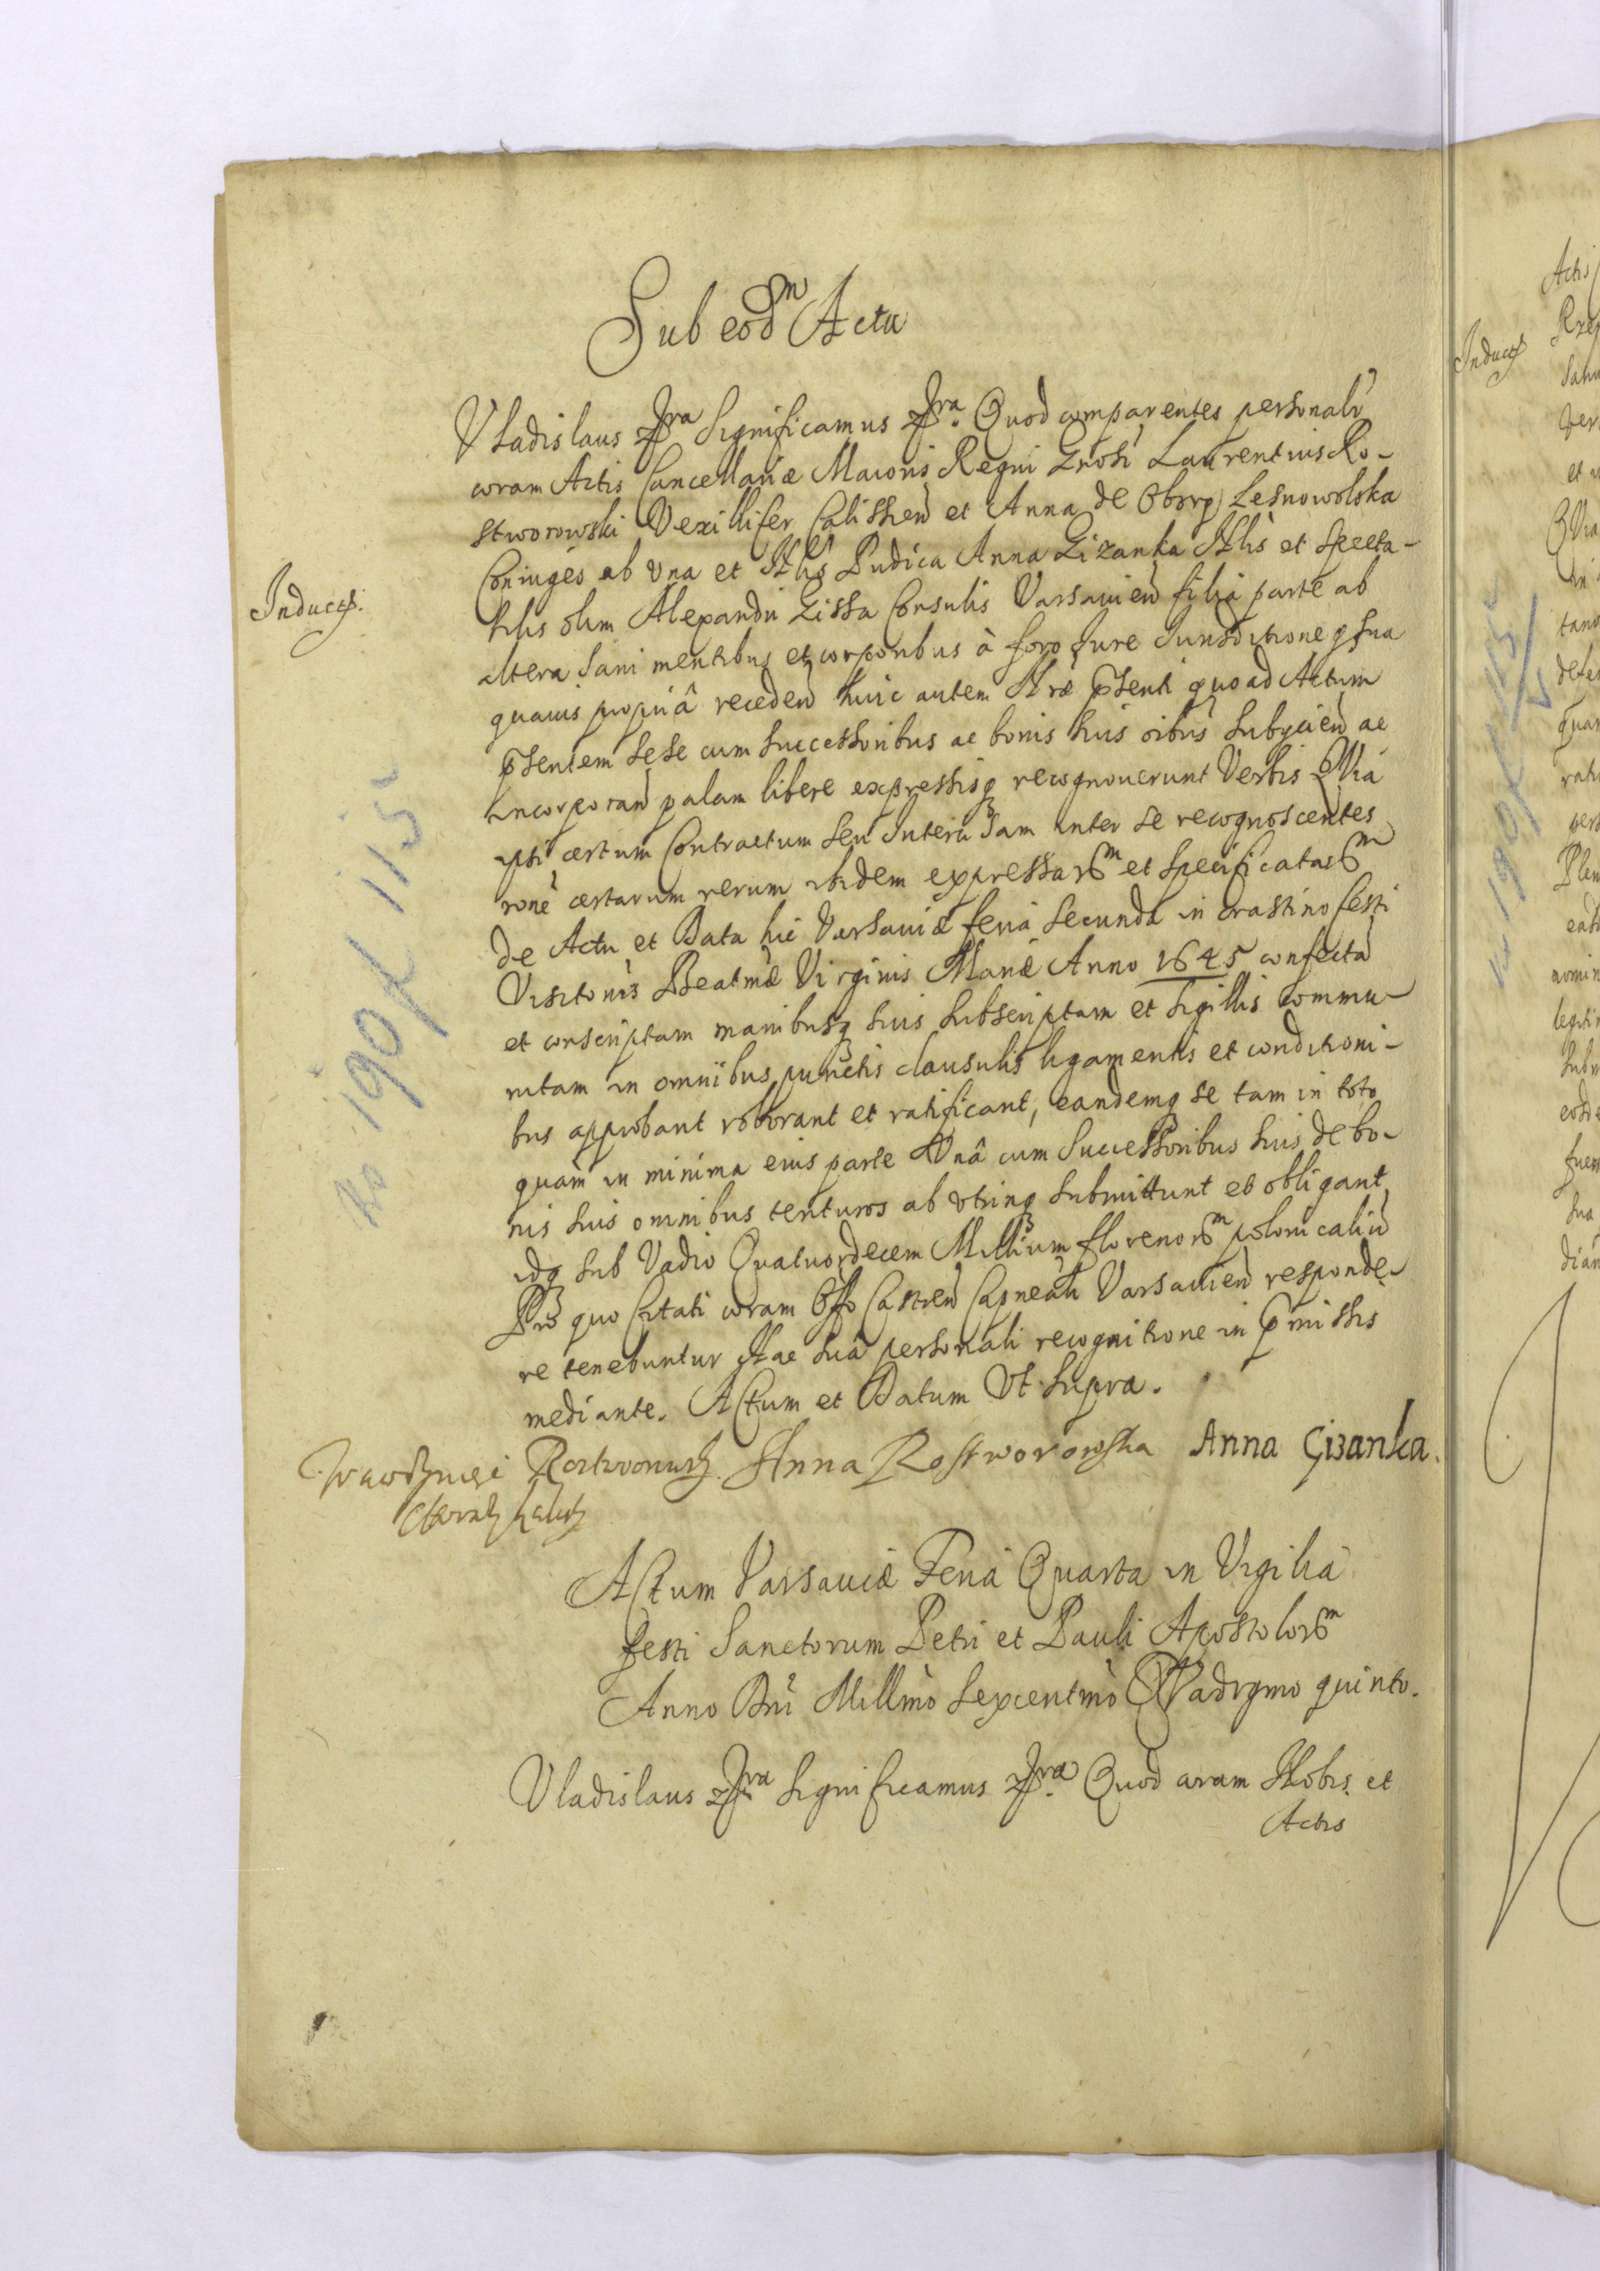 Sub eodm Actu
Vladislaus etc. Significamus etc. Quod comparentes personalr
coram Actis Cancellariæ Maioris Regni Gnosi Laurentius Ro-
stworowski Vexillifer Calissien et Anna de Obory Lesnowolska
Coniuges ab una et Nblis Pudica Anna Gizanka Nblis et Specta-
Induct.
bilis olim Alexandri Gissa Consulis Varsavien filia parte ab
altera Sani mentibus et corporibus à foro Jure Jurisditioneq sua
quavis propriâ receden huic autem Nræ pnsenti quo ad Actum
pnsentem sese cum Successoribus ac bonis suis oibus subycien ac
incorporan palam libere expressisq recognoverunt Verbis Quia
ipsi certum Contractum seu Intercisam inter se recognoscentes
rone certarum rerum ibidem expressarum et specificatarum
de Actu et Data hic Varsaviæ feria secunda in crastino festi
Visitonis Beatmæ Virginis Mariæ Anno 1645 confectã
et conscriptam manibusq suis subscriptam et sigillis commu-
nitam in omnibus punctis clausulis ligamentis et conditioni-
bus approbant roborant et ratificant, eandemq se tam in toto
quàm in minima eius parte Unâ cum Successoribus suis de bo-
nis suis omnibus tenturos ab utrinq submittunt et obligant
idq sub Vadio Quatuordecem Millium florenorum polonicaliu
Pro quo Citati coram Offo Castren Capneali Varsavien responde-
re tenebuntur Hac suâ personali recognitione in pmissis
mediante. Actum et Datum Ut supra.
Wawrzyniec Rostworowski Anna Rostworowska Anna Gizanka.
Actum Varsaviæ Feria Quarta in Vigilia
festi Sanctorum Petri et Pauli Apostolorum
Anno Dni Millmo Sexcentmo Quadrgmo quinto.
Vladislaus etc. Significamus etc. Quod coram Nobis et
Actis